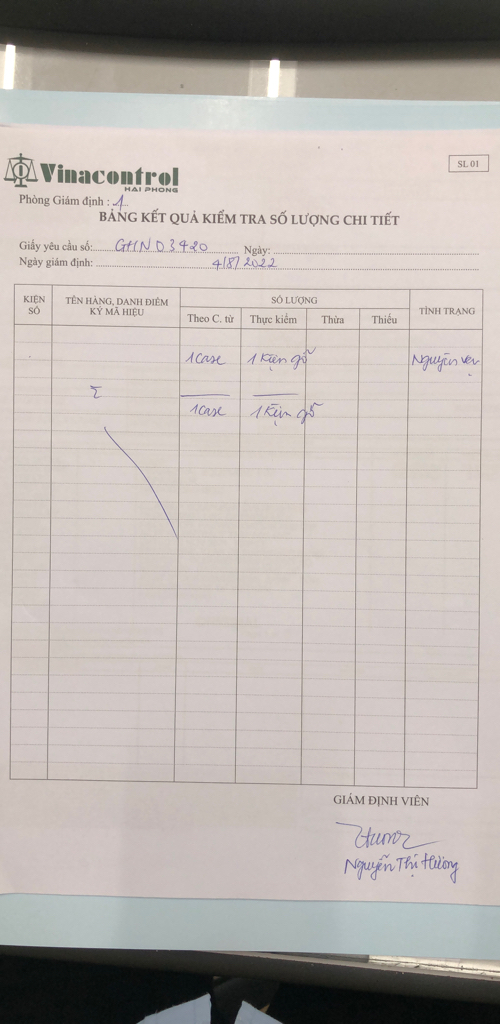 SL 01
Vinacontrol
HAI PHONG
Phòng Giám định : 1
BẢNG KẾT QUẢ KIỂM TRA SỐ LƯỢNG CHI TIẾT
Giấy yêu cầu số: GHND3420 Ngày:
Ngày giám định: 4/8/2022
KIỆN SỐ TÊN HÀNG, DANH ĐIỂM KÝ MÃ HIỆU SỐ LƯỢNG TÌNH TRẠNG
Theo C. từ Thực kiểm Thừa Thiếu
1 case 1 kiện gỗ Nguyên vẹn
Σ
1 case 1 kiện gỗ
GIÁM ĐỊNH VIÊN
Hương
Nguyễn Thị Hương